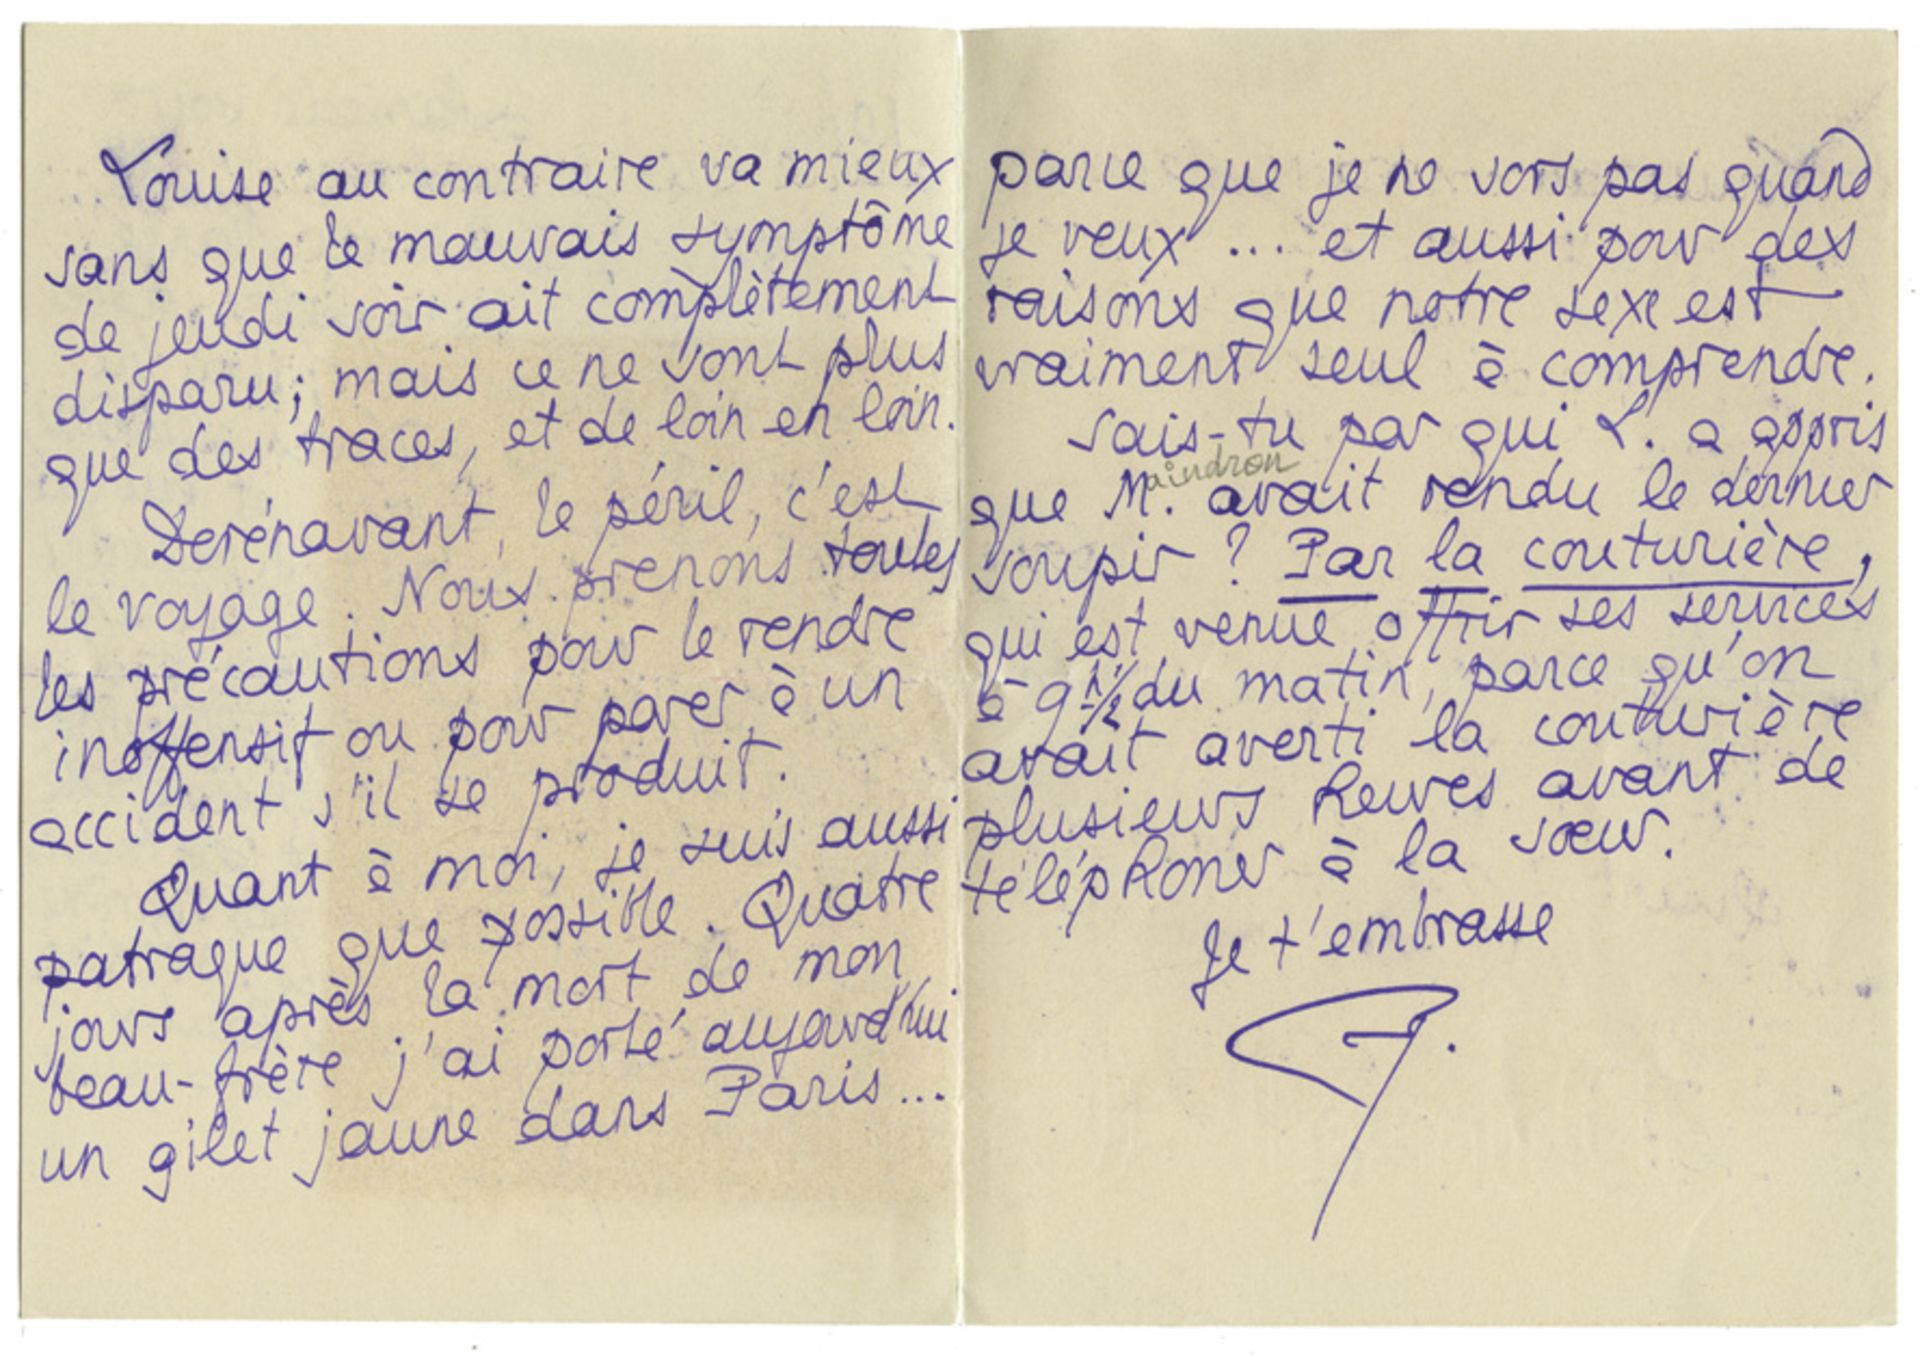 Louise au contraire va mieux
sans que le mauvais symptôme
de jeudi soir ait complètement
disparu ; mais ce ne sont plus
que des traces, et de loin en loin.
Dorénavant, le péril, c'est
le voyage. Nous prenons toutes
les précautions pour le rendre
inoffensif ou pour parer à un
accident s'il se produit.
Quant à moi, je suis aussi
patraque que possible. Quatre
jours après la mort de mon
beau-frère j'ai porté aujourd'hui
un gilet jaune dans Paris...
parce que je ne sors pas quand
je veux ... et aussi pour des
raisons que notre sexe est
vraiment seul à comprendre.
Sais-tu par qui L. a appris
que M. aindron avait rendu le dernier
soupir ? Par la couturière,
qui est venue offrir ses services
à 9 h 1/2 du matin, parce qu'on
avait averti la couturière
plusieurs heures avant de
téléphoner à la sœur.
Je t'embrasse
P.